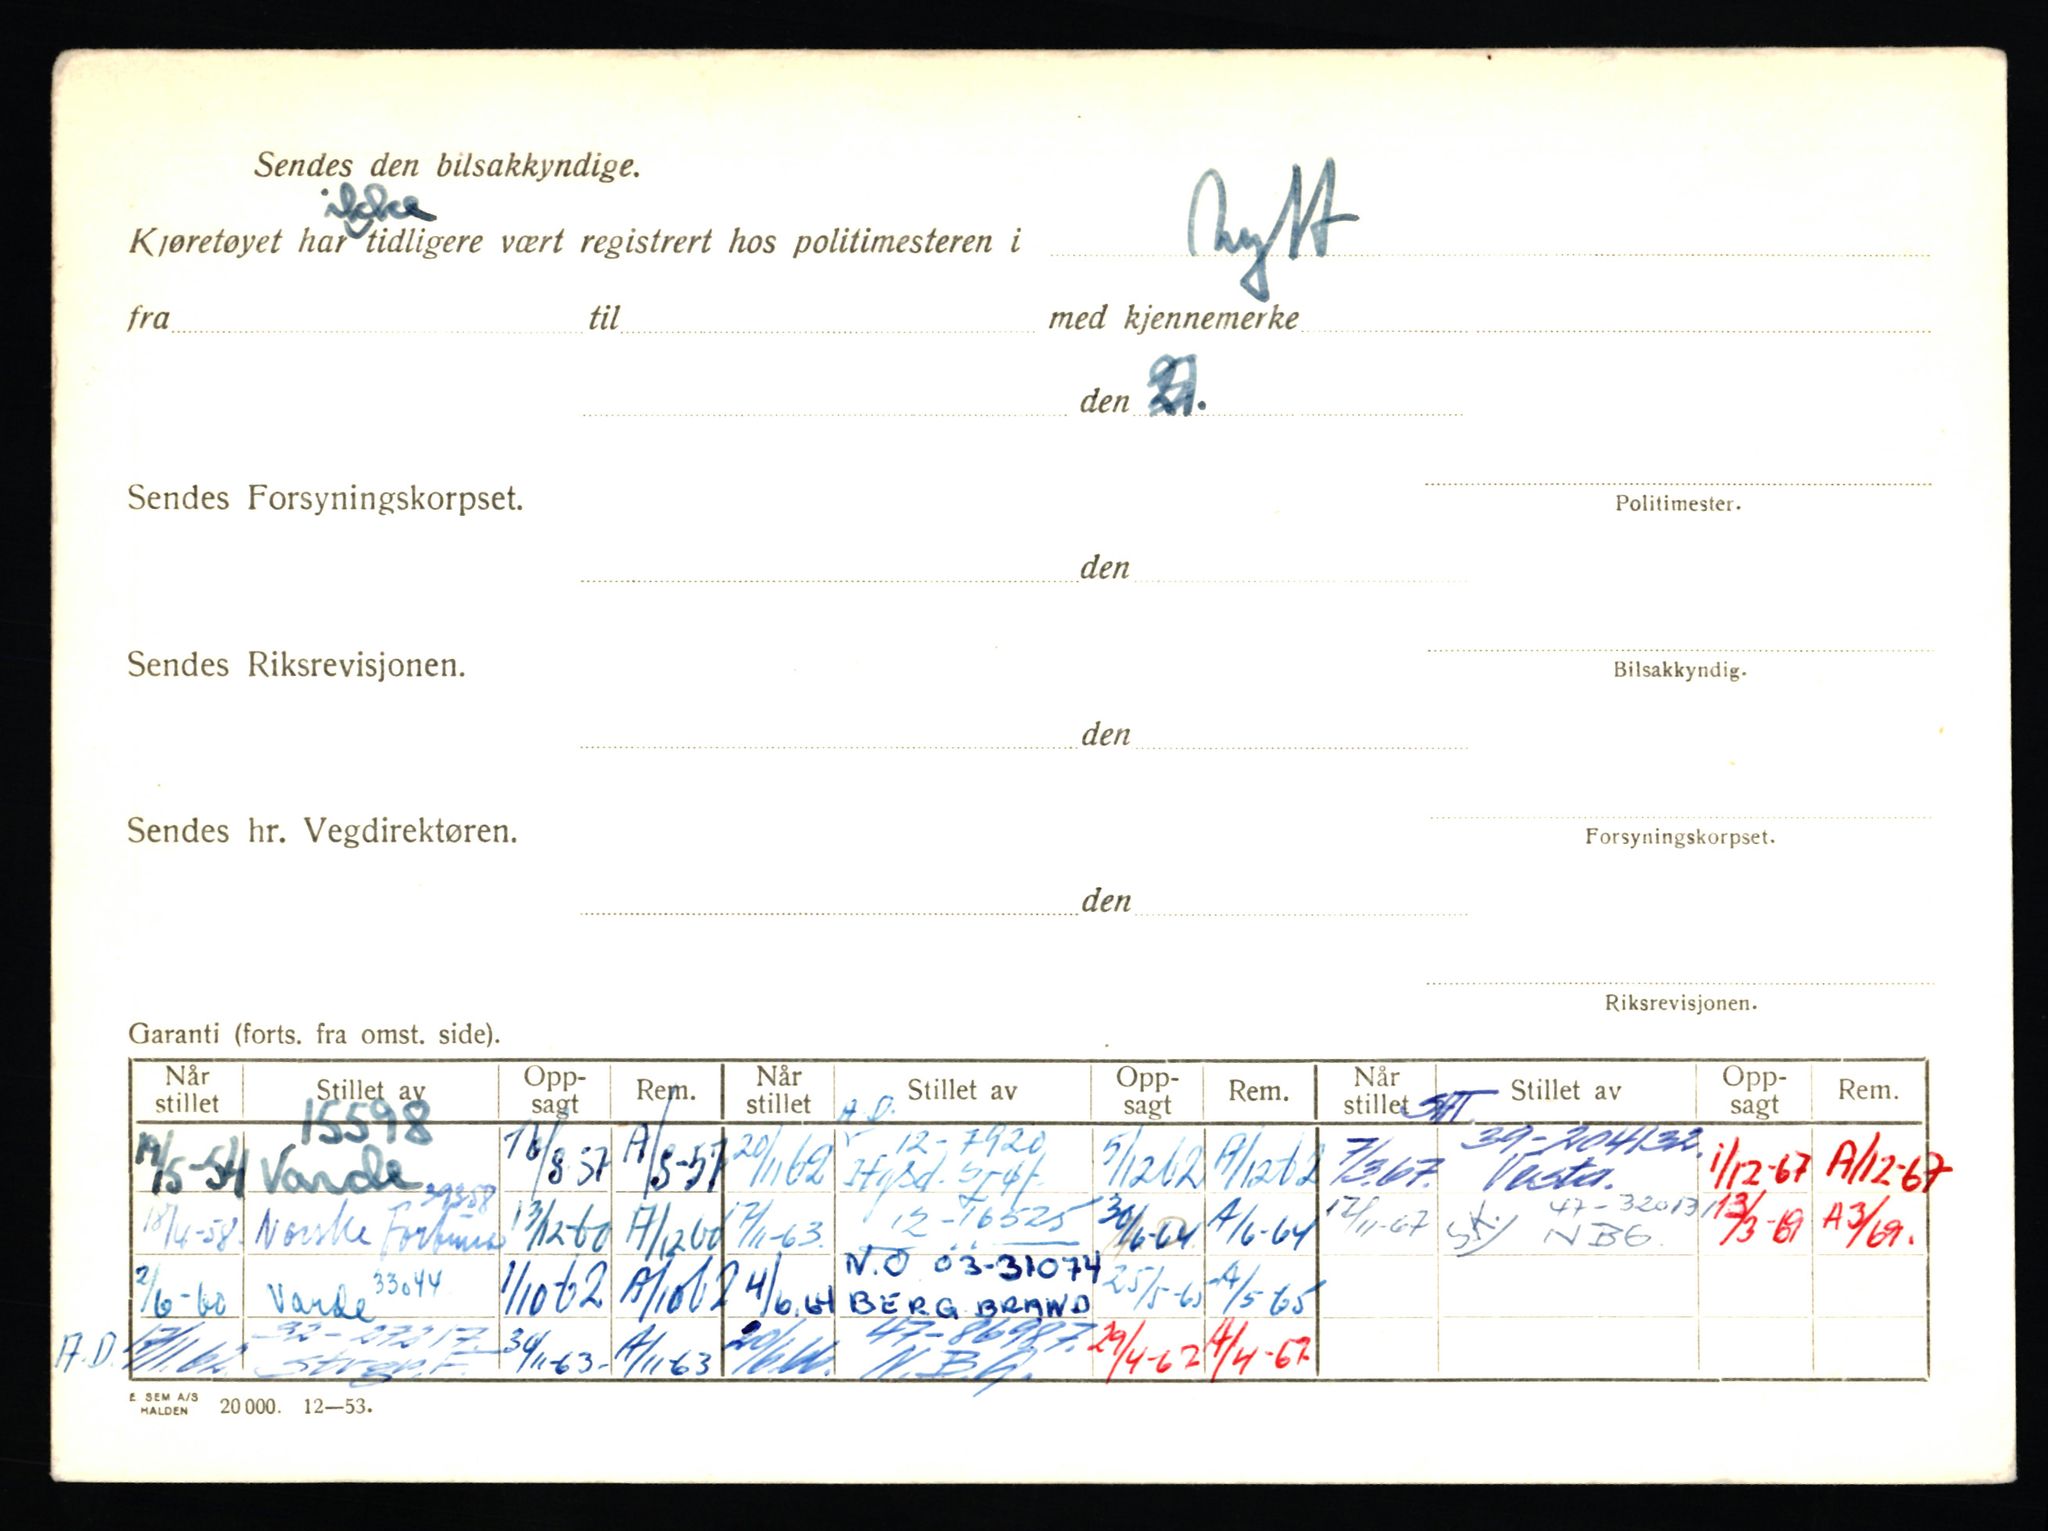 Sendes den bilsakkyndige.
ikke
Kjøretøyet har tidligere vært registrert hos politimesteren i Nytt
fra til med kjennemerke
den
Sendes Forsyningskorpset.
Politimester.
den
Sendes Riksrevisjonen.
Bilsakkyndig.
den
Sendes hr. Vegdirektøren.
Forsyningskorpset.
den
Riksrevisjonen.
Garanti (forts. fra omst. side).
Når stillet Stillet av Opp-sagt Rem. Når stillet Stillet av Opp-sagt Rem. Når stillet Stillet av Opp-sagt Rem.
15598 A.D. 12-7920 39-204132.
19/5-54 Varde 16/8 57 A/8-57 20/11 62 5/12 62 A/12 62 7/3.67. Vesta. 1/12-67 A/12-67
39358 12-16525 47-32013
18/4-58. Norske Fortuna 13/12-60 A/12 60 17/11-63. 30/6-64. A/6-64 17/11-67 NBG. 13/3-69 A3/69.
33044 N.O 03-31074
2/6-60 Varde 1/10 62 A/10 62 4/6.64 BERG BRAND 25/5-65 A/5-65
32-27217. 47-86987.
A.D. 17/11 62. 30/11-63- A/11-63 20/6.66. N.B.G. 29/4-67 A/4-67
E SEM A/S
HALDEN 20 000. 12—53.